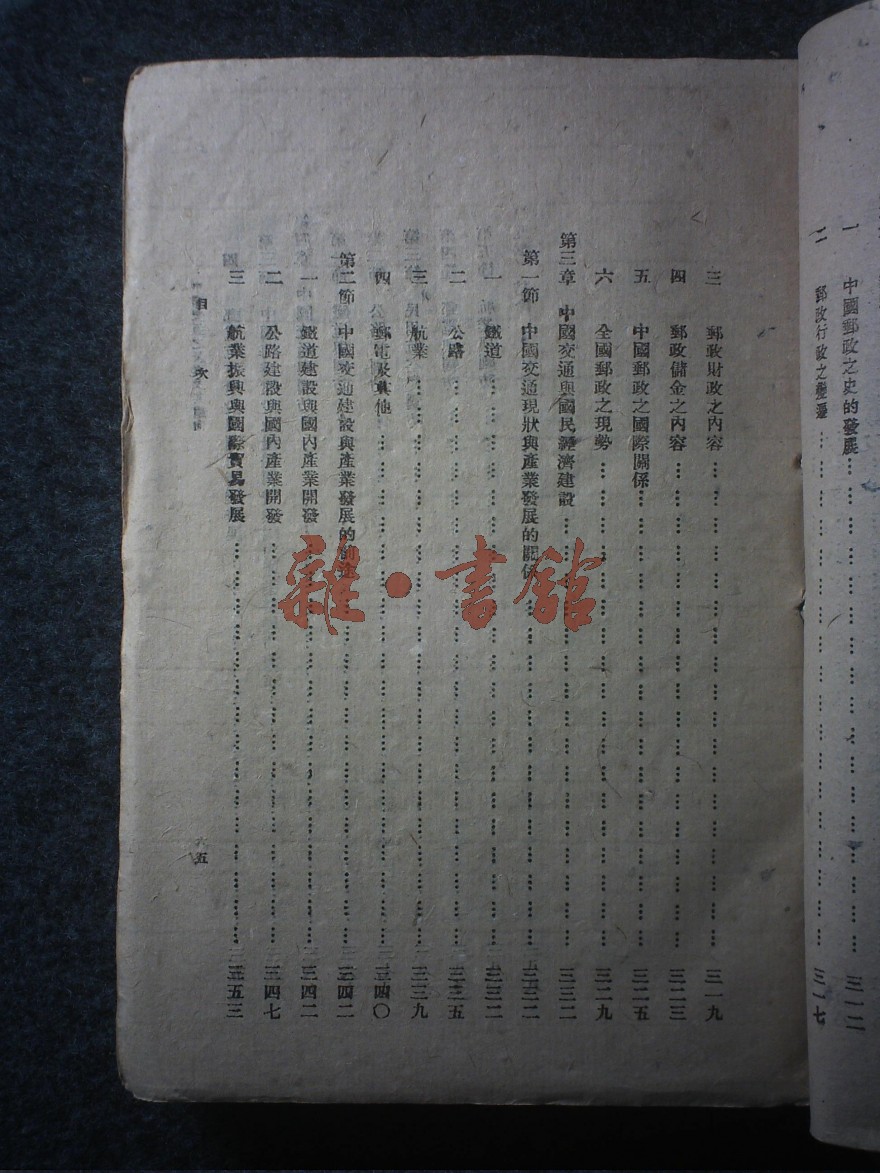 一 中國郵政之史的發展……三一二
二 郵政行政之變遷……三一七
三 郵政財政之內容……三一九
四 郵政儲金之內容……三二三
五 中國郵政之國際關係……三二五
六 全國郵政之現勢……三二九
第三章 中國交通與國民經濟建設……三三二
第一節 中國交通現狀與產業發展的關係……三三二
一 鐵道……三三二
二 公路……三三五
三 航業……三三九
四 郵電及其他……三四〇
第二節 中國交通建設與產業發展的……三四二
一 鐵道建設與國內產業開發……三四二
二 公路建設與國內產業開發……三四七
三 航業振興與國際貿易發展……三五三
目 次
五
雜·書館